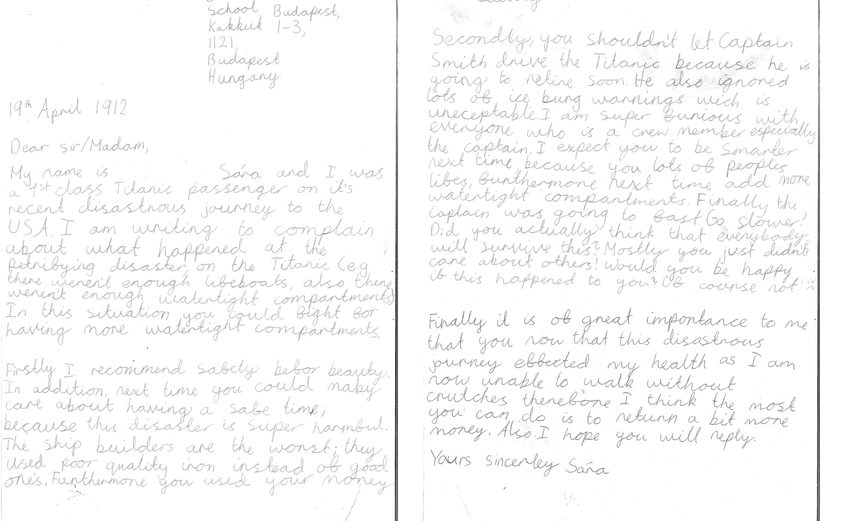 School Budapest,
Kakkuk 1-3,
1121,
Budapest
Hungary
19th April 1912
Dear sir/Madam,
My name is Sára and I was
a 1st class Titanic passenger on it's
recent disastrous journey to the
USA. I am writing to complain
about what happened at the
petrifying disaster on the Titanic (e.g.
there weren't enough lifeboats, also there
weren't enough watertight compartments)
In this situation you could fight for
having more watertight compartments.
Firstly I recommend safety befor beauty.
In addition, next time you could maby
care about having a safe time;
because this disaster is super harmful.
The ship builders are the worst; they
used poor quality iron instead of good
one's. Furthermore you used your money
Secondly, you shouldn't let Captain
Smith drive the Titanic because he is
going to retire soon. He also ignored
lots of ice burg warnings wich is
uneceptable. I am super furious with
everyone who is a crew member especially
the captain. I expect you to be smarter
next time, because you lots of peoples
lifes, furthermore next time add more
watertight compartments. Finally the
Captain was going to fast Go slower!
Did you actually think that everybody
will survive this? Mostly you just didn't
care about others! Would you be happy
if this happened to you? Of course not!
Finally it is of great importance to me
that you now that this disastrous
journey effected my health as I am
now unable to walk without
crutches therefore I think the most
you can do is to return a bit more
money. Also I hope you will reply.
Yours sincerley Sára